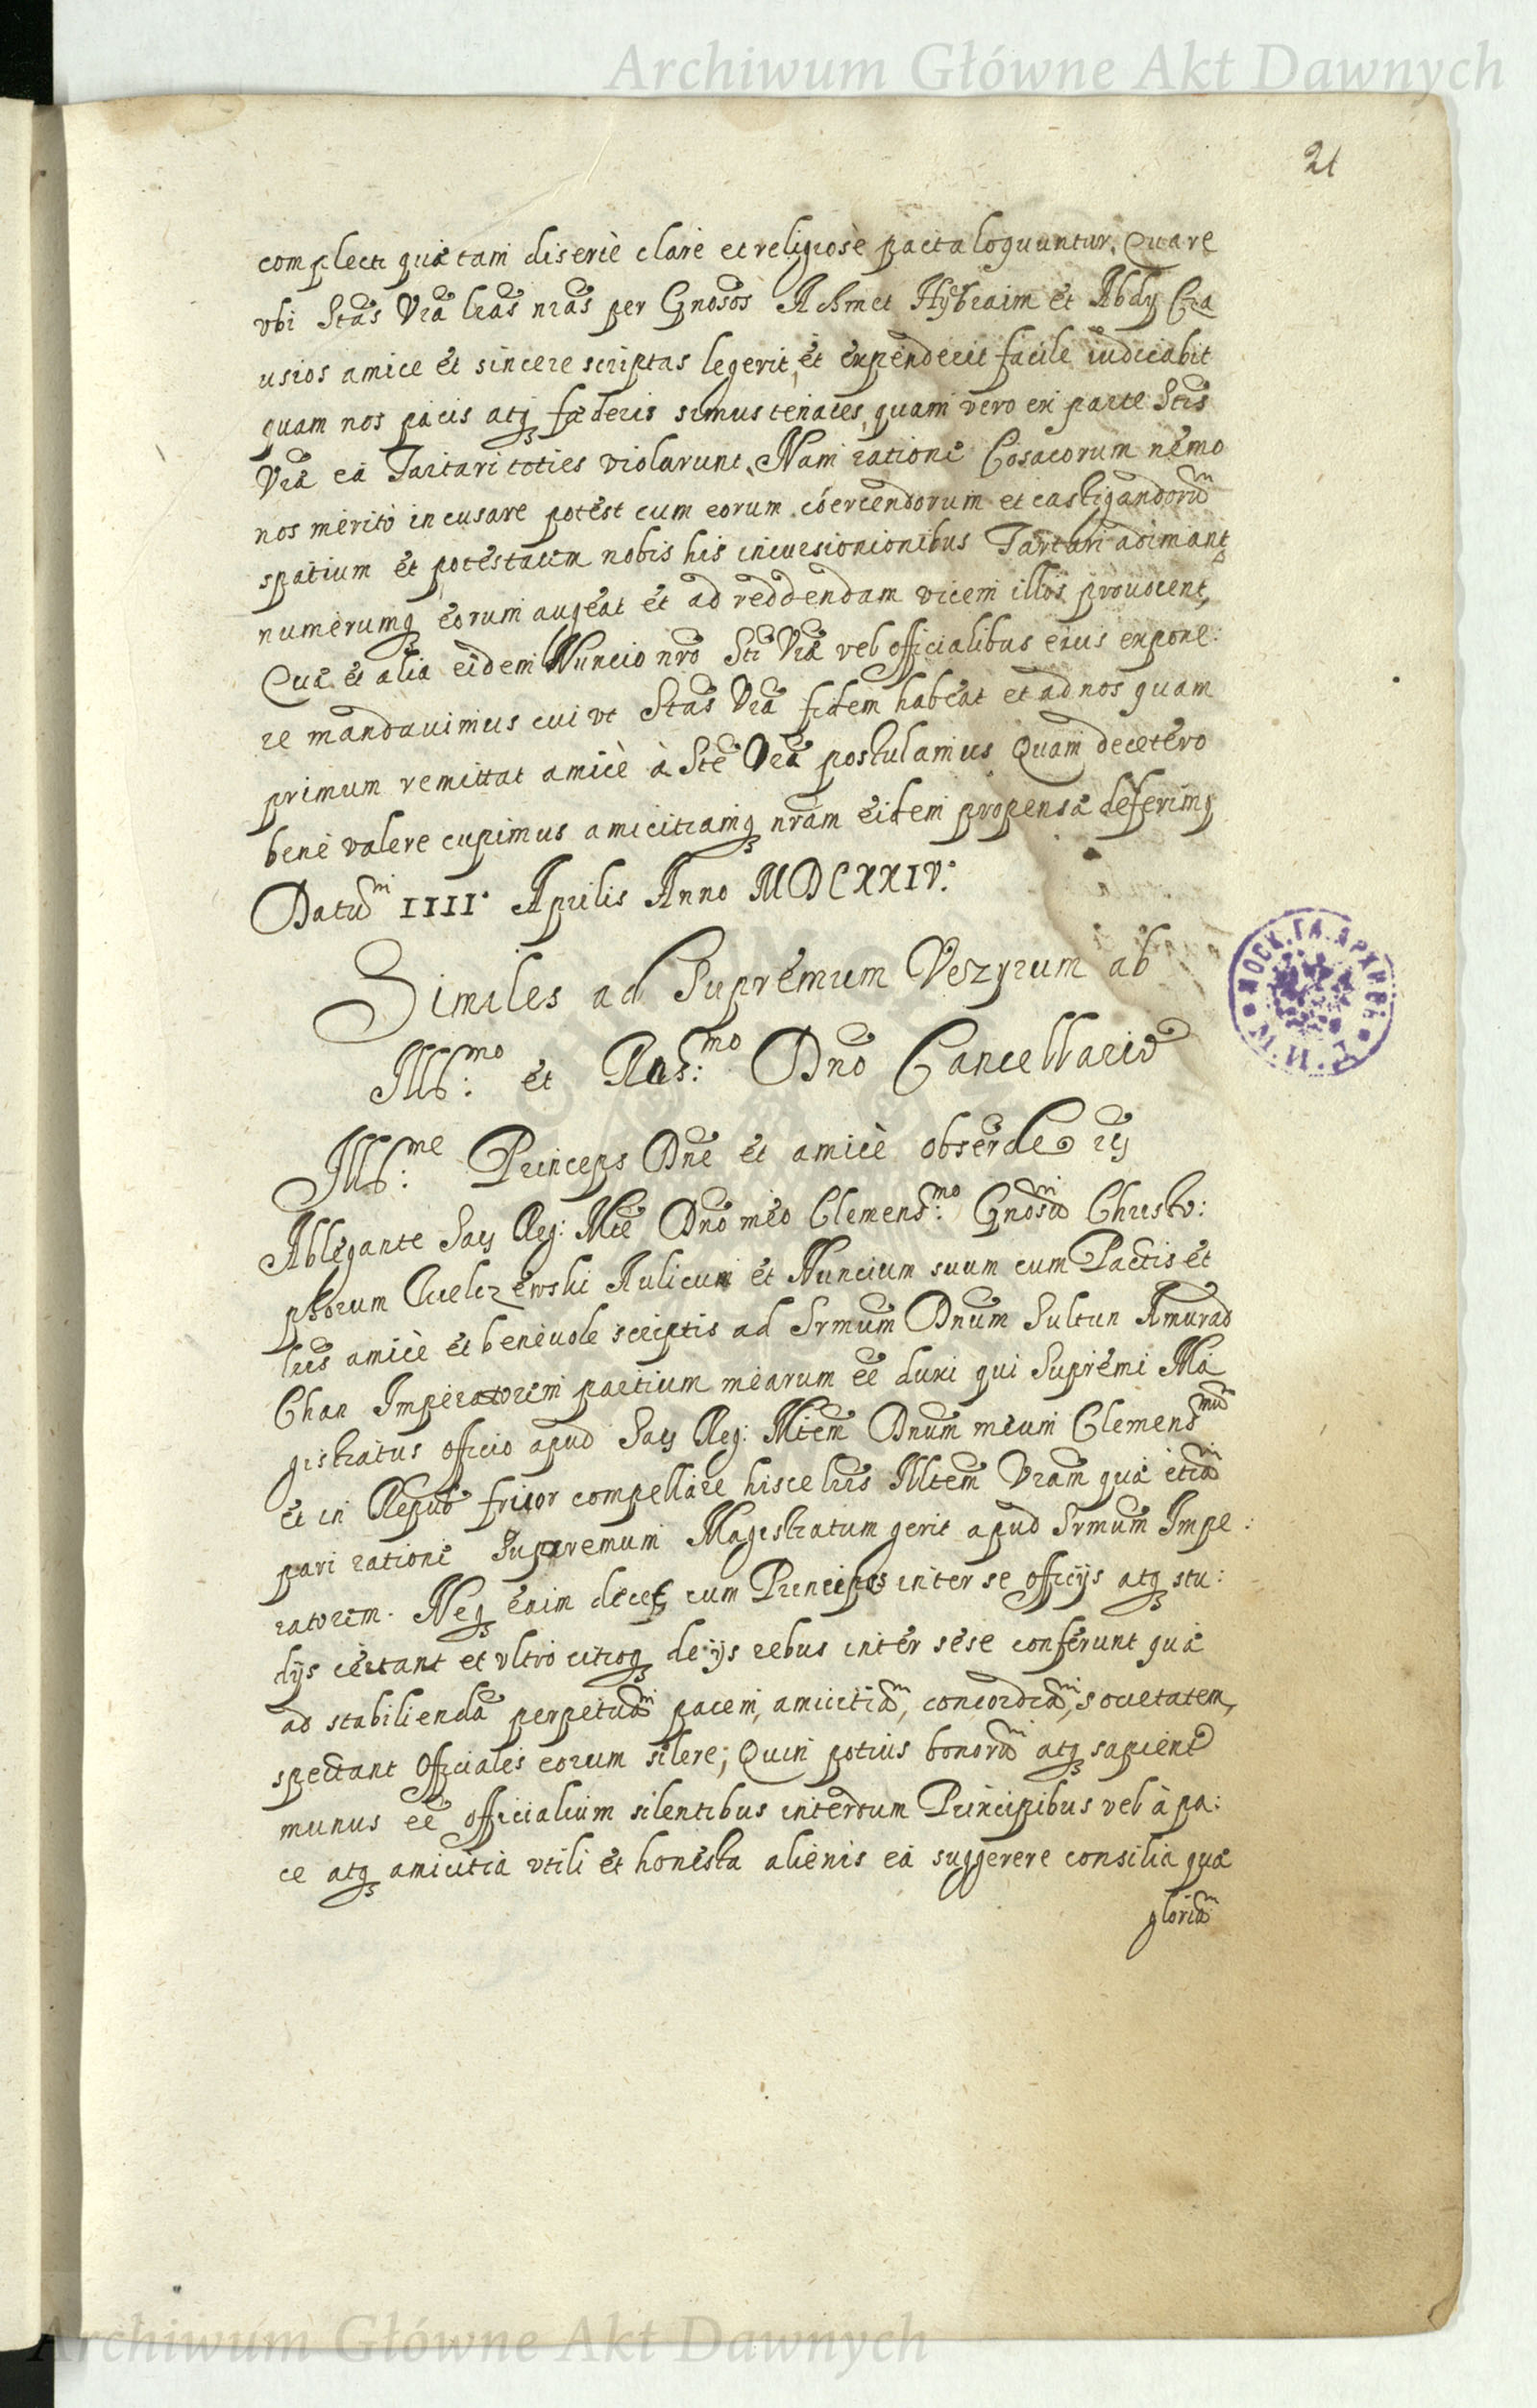 Archiwum Główne Akt Dawnych
21
complecti quæ tam disertè clarè et religiosè pacta loquuntur. Quare
vbi Stas̃ Vrã lrãs nrãs per Gnosos̃ Achmet Hybraim et Abdy Cza
usios amice et sincere scriptas legerit, et expenderit facile iudicabit
quam nos pacis atq fæderis simus tenaces, quam vero ex parte Stis̃
Vræ̃ ea Tartari toties violarunt. Nam ratione Cosacorum nemo
nos meritò incusare potest cum eorum coercendorum et castigandorũ
spatium et potestatem nobis his incursionionibus Tartari adimant
numerumq eorum augeat et ad reddendam vicem illos prouocent,
Quæ et alia eidem Nuncio nrõ Sti Vræ̃ vel officialibus eius expone:
re mandauimus cui vt Stas̃ Vrã fidem habeat et ad nos quam
primum remittat amicè à Stẽ Vrã postulamus Quam decetero
bene valere cupimus amicitiamq nrãm eidem propensè deferimq
Datũ IIII. Aprilis Anno MDCXXIV.
Similes ad Supremum Vezyrum ab
Illb: mo et Rñs: mo Dño Cancellario
Illb: me Princeps Dñe et amicè obserde
Ablegante Sacj Reg: Mtẽ Dño meo Clemens: mo Gnosũ Christo:
phorum Kuelczewski Aulicum et Nuncium suum cum Pactis et
lrĩs amicè et beneuole scriptis ad Srmũm Dnũm Sultan Amurad
Chan Imperatorem partium mearum eẽ duxi qui Supremi Ma
gistratus officio apud Sacj Reg: Mtẽm Dnũm meum Clemens mũ
et in Repub fruor compellare hisce lrĩs Illtẽm Vrãm quæ etiã
pari ratione Supremum Magistratum gerit apud Srmũm Impe:
ratorem. Neq enim decet cum Principes inter se officijs atq stu:
dijs certant et vltrò citroq de ijs rebus inter sese conferunt quæ
ad stabiliendã perpetuã pacem, amicitiã, concordiã, societatem,
spectant Officiales eorum silere; Quin potius bonorũ atq sapient
munus eẽ officialium silentibus interdum Principibus vel à pa:
ce atq amicitia vtili et honesta alienis ea suggerere consilia quæ
gloriã
Archiwum Główne Akt Dawnych